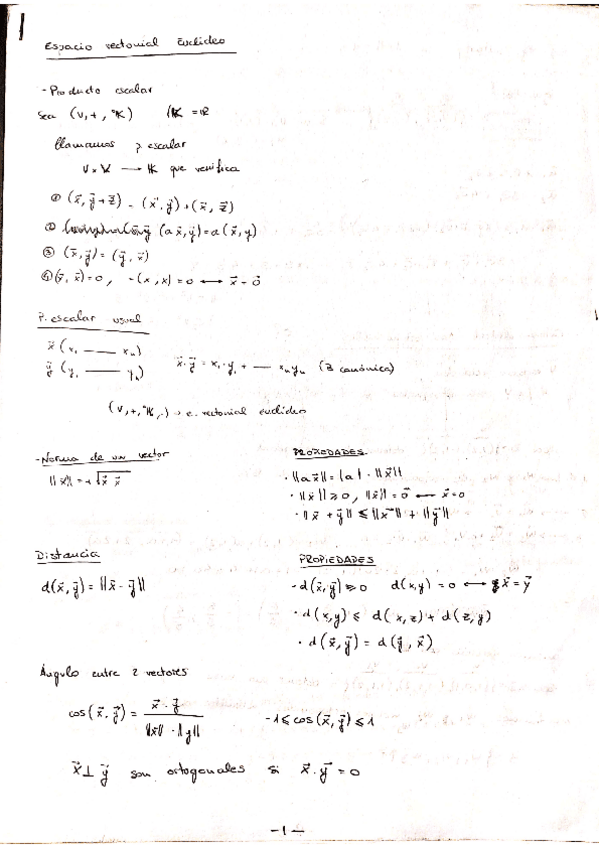 Espacio vectorial Euclídeo
- Producto escalar
Sea (V, +, °K) K = R
llamamos p. escalar
V x V → K que verifica
① (x⃗, y⃗ + z⃗) = (x⃗, y⃗) + (x⃗, z⃗)
② (a x⃗, y⃗) = a (x⃗, y)
③ (x⃗, y⃗) = (y⃗, x⃗)
④ (x⃗, x⃗) = 0, - (x, x) = 0 ⟷ x⃗ = 0⃗
P. escalar usual
x⃗ (x₁ —— xₙ)
y⃗ (y₁ —— yₙ)
x⃗ · y⃗ = x₁ · y₁ + — xₙ yₙ (B canónica)
(V, +, °K, ·) → e. vectorial euclídeo
- Norma de un vector
||x⃗|| = +√x⃗ x⃗
PROPIEDADES
· ||a x⃗|| = |a| · ||x⃗||
· ||x⃗|| ⩾ 0, ||x⃗|| = 0⃗ ⟷ x⃗ = 0
· ||x⃗ + y⃗|| ⩽ ||x⃗|| + ||y⃗||
Distancia
d(x⃗, y⃗) = ||x⃗ - y⃗||
PROPIEDADES
- d(x⃗, y⃗) ⩾ 0 d(x, y) = 0 ⟷ x⃗ = y⃗
· d(x, y) ⩽ d(x, z) + d(z, y)
· d(x⃗, y⃗) = d(y⃗, x⃗)
Ángulo entre 2 vectores
cos(x⃗, y⃗) = x⃗ · y⃗ / ||x⃗|| · ||y||
-1 ⩽ cos(x⃗, y⃗) ⩽ 1
x⃗ ⊥ y⃗ son ortogonales si x⃗ · y⃗ = 0
- 1 -